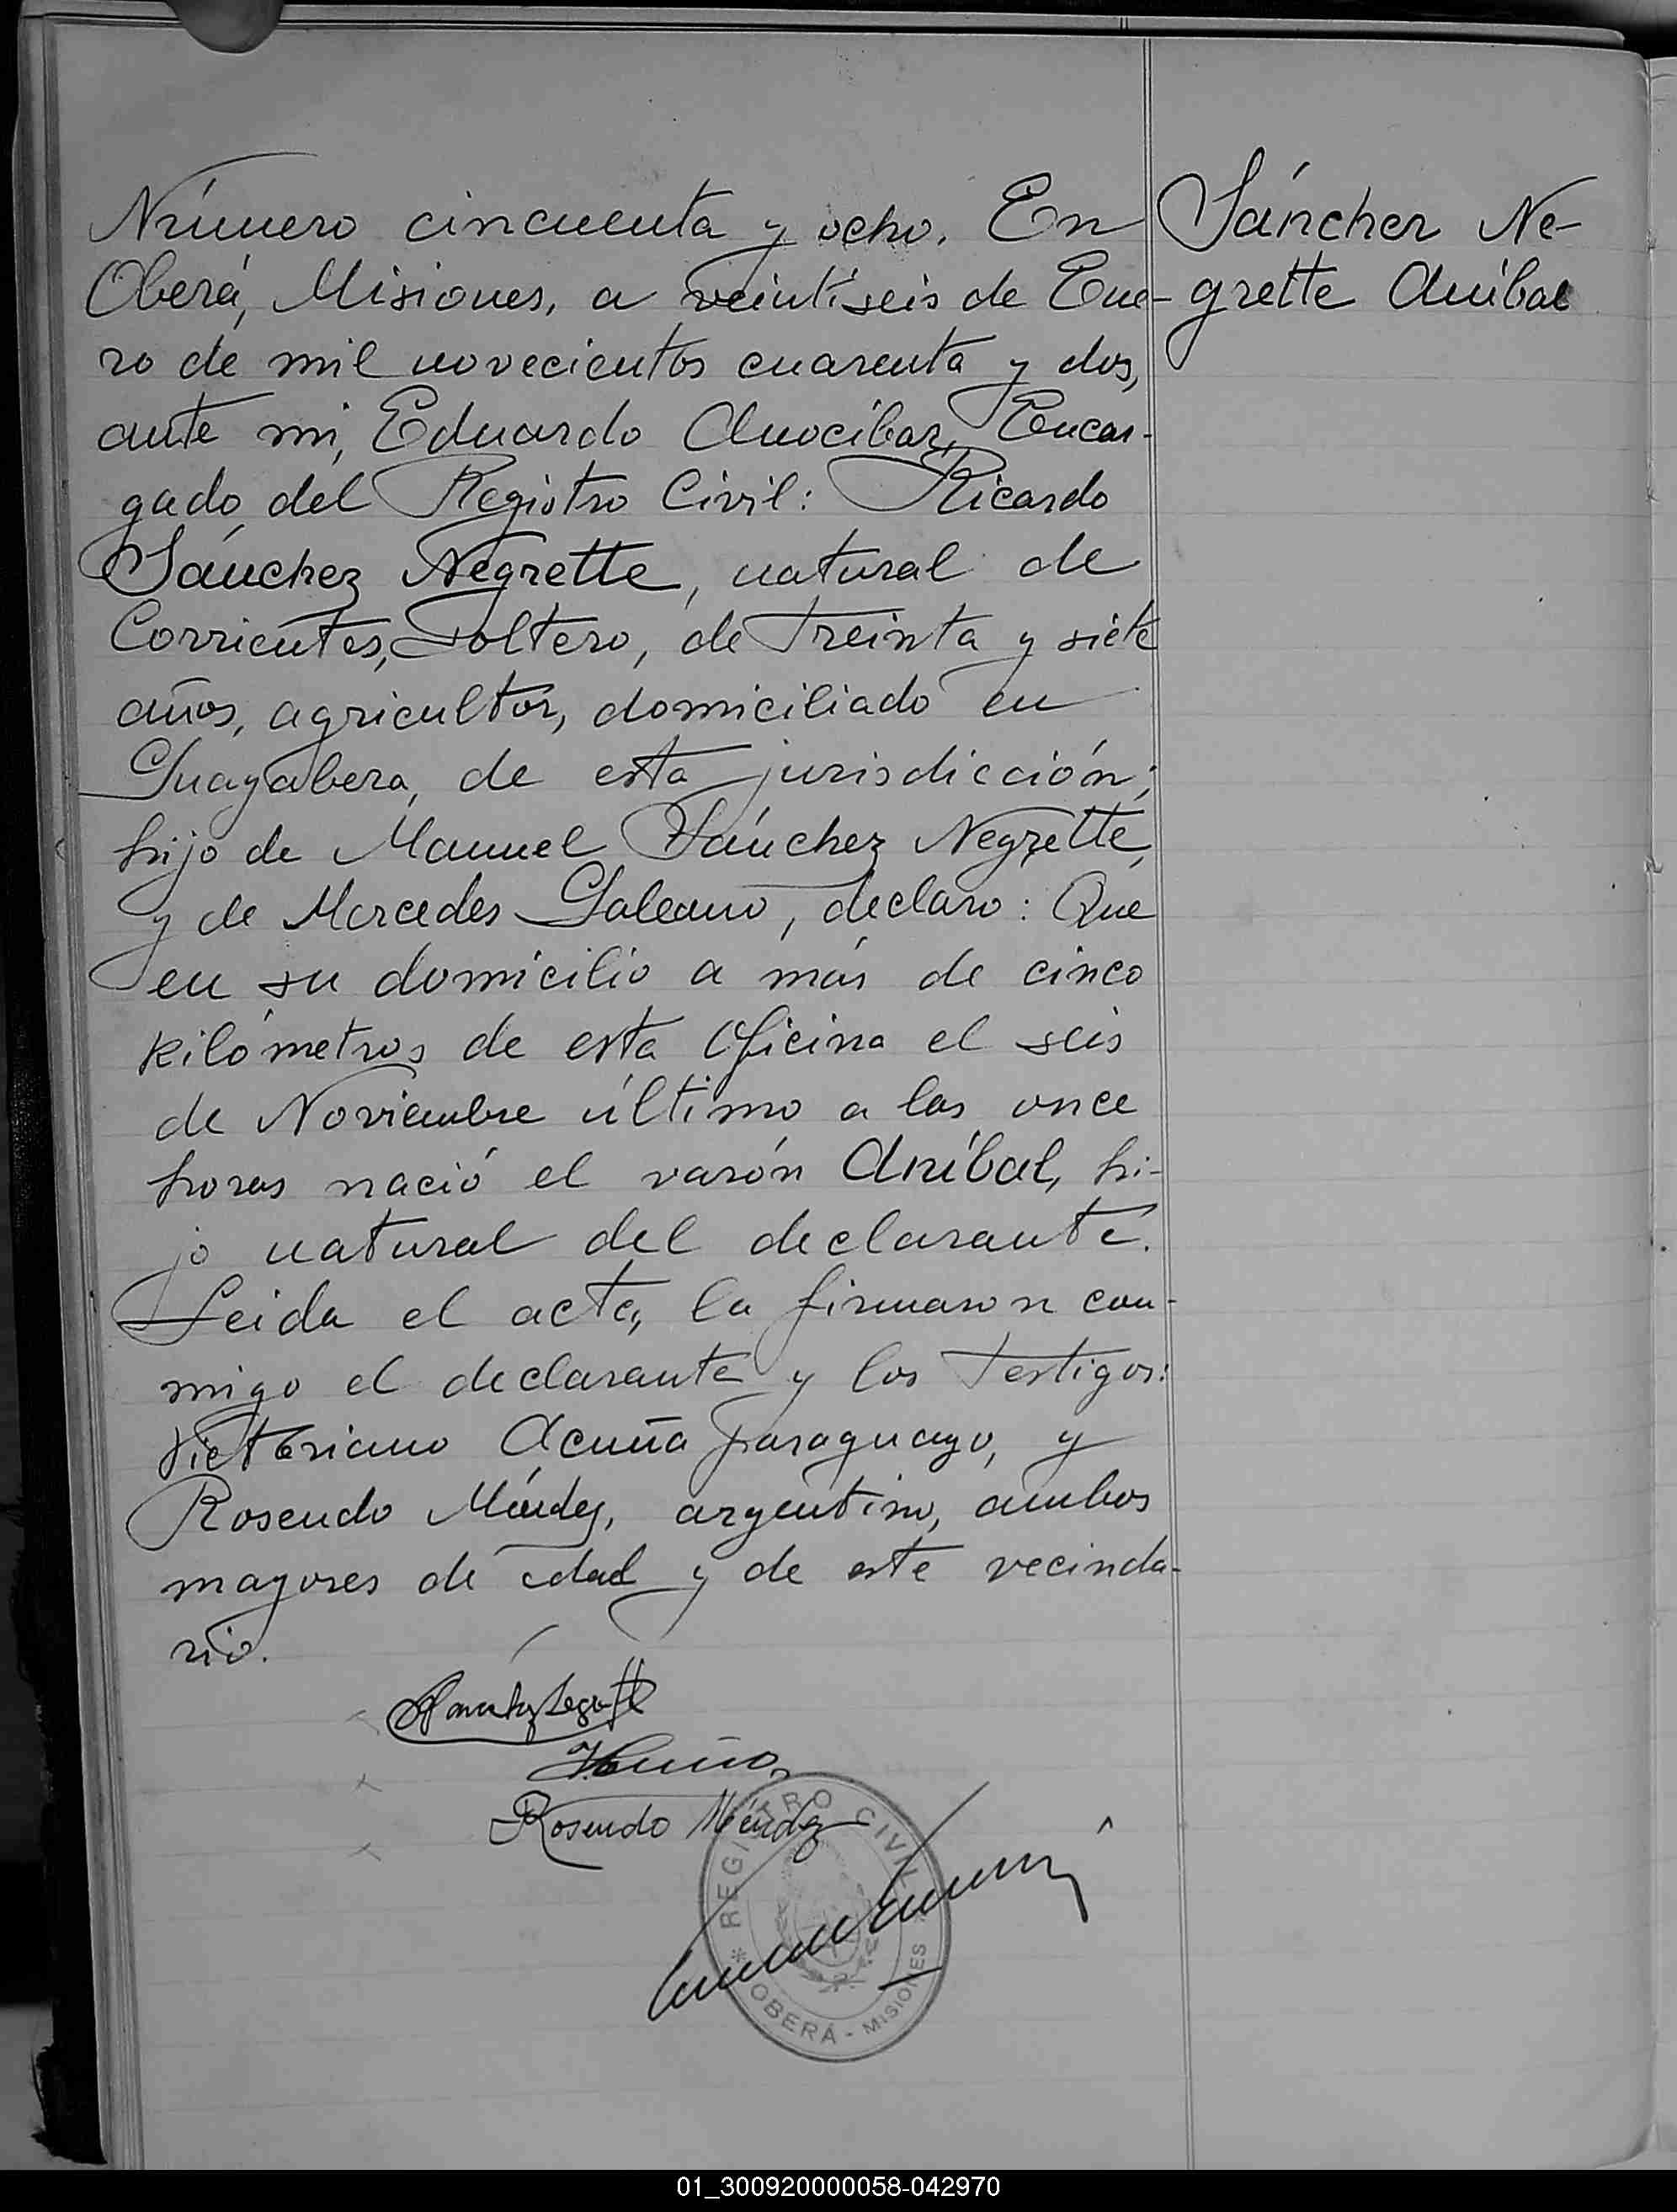 Número cincuenta y ocho. En
Oberá, Misiones, a veintiseis de Ene-
ro de mil novecientos cuarenta y dos,
ante mi, Eduardo Anocibar, Encar-
gado del Registro Civil: Ricardo
Sánchez Negrette, natural de
Corrientes, soltero, de treinta y siete
años, agricultor, domiciliado en
Guayabera, de esta jurisdicción;
hijo de Manuel Sánchez Negrette,
y de Mercedes Galeano, declaro: Que
en su domicilio a más de cinco
kilómetros de esta Oficina el seis
de Noviembre último a las once
horas nació el varón Aníbal, hi-
jo natural del declarante.
Leida el acta, la firmaron con-
migo el declarante y los testigos:
Victoriano Acuña paraguayo, y
Rosendo Méndez, argentino, ambos
mayores de edad y de este vecinda-
rio.
Sánchez Ne-
grette Aníbal
Rosendo Méndez
REGISTRO CIVIL
* OBERÁ - MISIONES
01_300920000058-042970